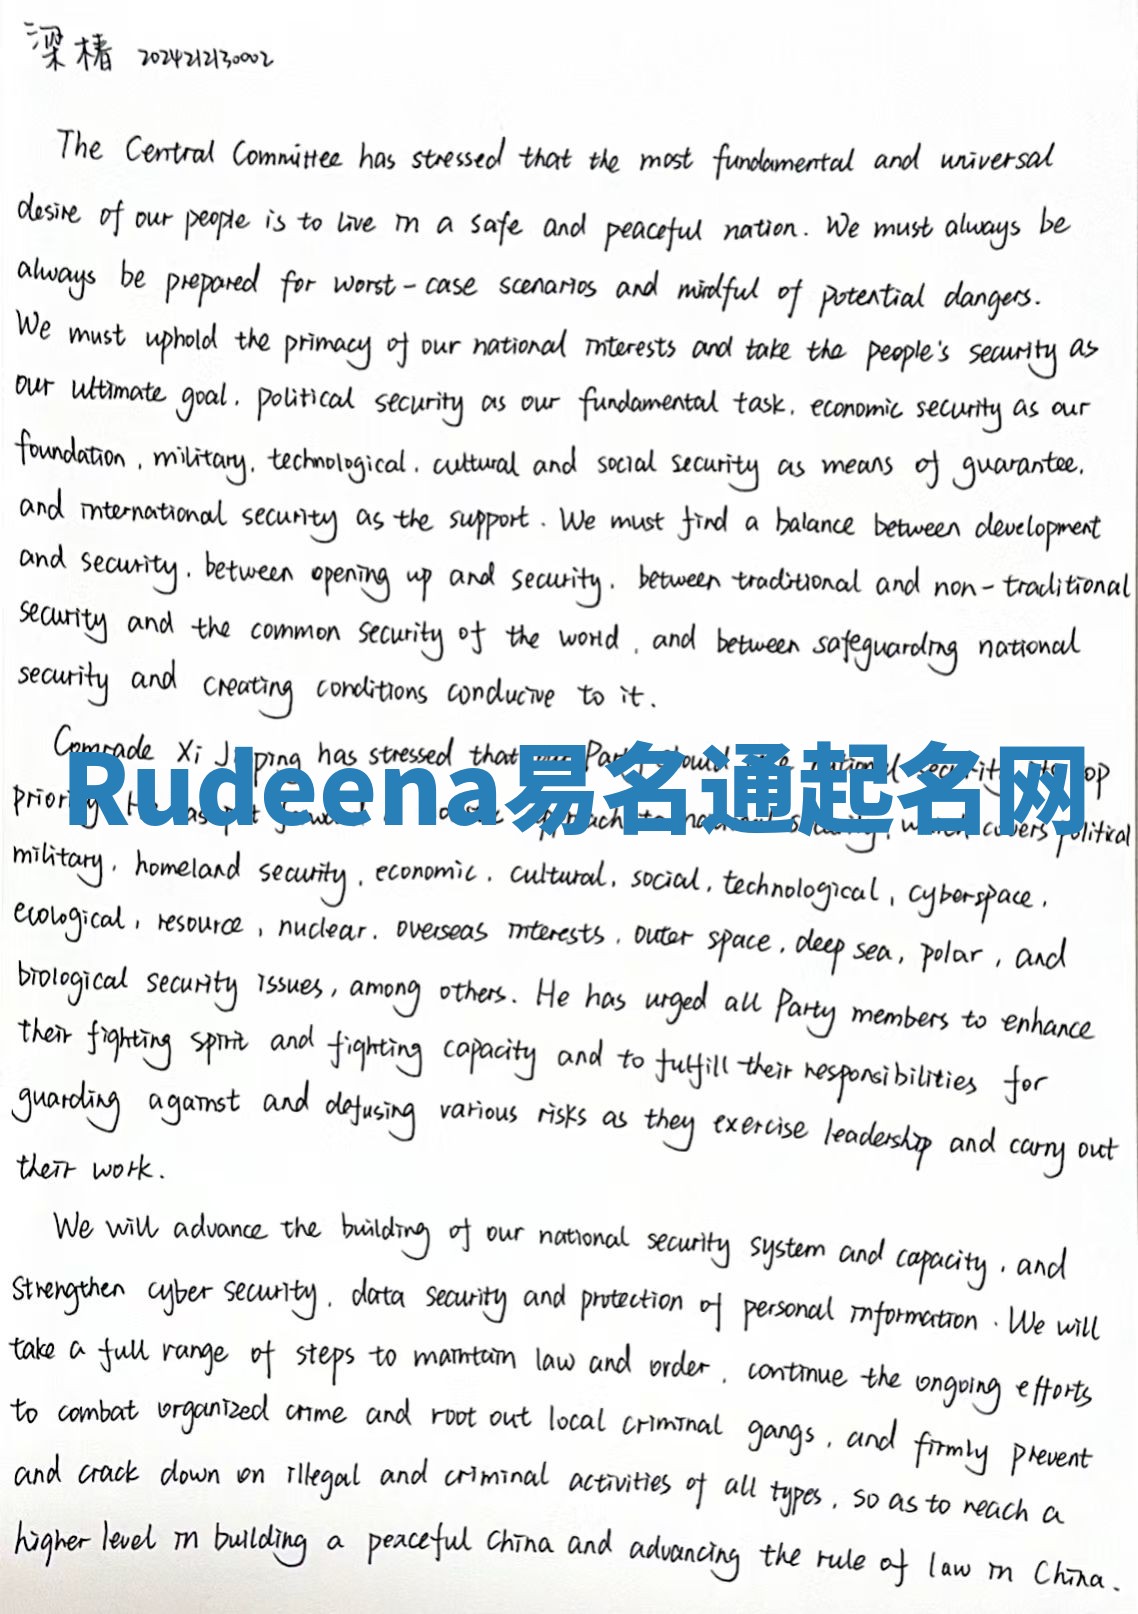 梁椿 2024212130002
The Central Committee has stressed that the most fundamental and universal
desire of our people is to live in a safe and peaceful nation. We must always be
always be prepared for worst-case scenarios and mindful of potential dangers.
We must uphold the primacy of our national interests and take the people's security as
our ultimate goal, political security as our fundamental task, economic security as our
foundation, military, technological, cultural and social security as means of guarantee,
and international security as the support. We must find a balance between development
and security, between opening up and security, between traditional and non-traditional
security and the common security of the world, and between safeguarding national
security and creating conditions conducive to it.
Comrade Xi Jinping has stressed that Party
Rudeena易名通起名网
covers political
military, homeland security, economic, cultural, social, technological, cyberspace,
ecological, resource, nuclear, overseas interests, outer space, deep sea, polar, and
biological security issues, among others. He has urged all Party members to enhance
their fighting spirit and fighting capacity and to fulfill their responsibilities for
guarding against and defusing various risks as they exercise leadership and carry out
their work.
We will advance the building of our national security system and capacity, and
strengthen cyber security, data security and protection of personal information. We will
take a full range of steps to maintain law and order, continue the ongoing efforts
to combat organized crime and root out local criminal gangs, and firmly prevent
and crack down on illegal and criminal activities of all types, so as to reach a
higher level in building a peaceful China and advancing the rule of law in China.